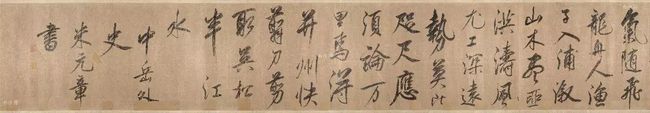 氣隨飛
龍舟人漁
子入浦漵
山木盡亞
洪濤風
尤工深遠
勢莫比
咫尺應
須論万
里焉得
并州快
剪刀剪
取吳松
半江
水
中岳外
史
米元章
書